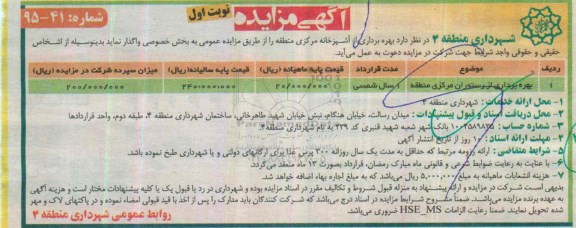 شماره: ۴۱-۹۵
آگهی مزایده
نوبت اول
شهرداری منطقه ۴ در نظر دارد بهره برداری از آشپزخانه مرکزی منطقه را از طریق مزایده عمومی به بخش خصوصی واگذار نماید بدینوسیله از اشخاص
حقیقی و حقوقی واجد شرایط جهت شرکت در مزایده دعوت به عمل می‌آید.
ردیف موضوع مدت قرارداد قیمت پایه ماهیانه (ریال) قیمت پایه سالیانه (ریال) میزان سپرده شرکت در مزایده (ریال)
۱ بهره برداری از رستوران مرکزی منطقه ۱ سال شمسی ۲۰/۰۰۰/۰۰۰ ۲۴۰/۰۰۰/۰۰۰ ۲۰۰/۰۰۰/۰۰۰
۱- محل ارائه خدمات: شهرداری منطقه ۴
۲- محل دریافت اسناد و قبول پیشنهادات: میدان رسالت، خیابان هنگام، نبش خیابان شهید طاهرخانی، ساختمان شهرداری منطقه ۴، طبقه دوم، واحد قراردادها
۳- شماره حساب: بانک شهر شعبه شهید قنبری کد ۴۳۹ به نام شهرداری منطقه ۴.
۴- مهلت ارائه اسناد: ۱۰ روز از تاریخ انتشار آگهی
۵- شرایط متقاضی: ارائه رزومه مرتبط که حداقل به مدت یک سال روزانه ۳۰۰ پرس غذا برای ارگانهای دولتی و یا شهرداری طبخ نموده باشد.
۶- با عنایت به رعایت ضوابط شرعی و قانونی ماه مبارک رمضان، قرارداد بصورت ۱۳ ماه منعقد می‌گردد.
۷- هزینه انشعابات ماهیانه به مبلغ ۵.۰۰۰.۰۰۰ ریال می‌باشد که به مبلغ اجاره بهاء اضافه خواهد شد.
بدیهی است شرکت در مزایده و ارائه پیشنهاد به منزله قبول شروط و تکالیف مقرر در اسناد مزایده بوده و شهرداری در رد یا قبول یک یا کلیه پیشنهادات مختار است و هزینه آگهی
به عهده برنده مزایده می‌باشد. ضمناً مشروح شرایط مزایده در اسناد درج می‌باشد که شرکت کنندگان باید مدارک را پس از اخذ با قید قبولی امضاء نموده و در پاکتهای لاک و مهر
شده تحویل نمایند. ضمنا رعایت الزامات HSE_MS ضروری می‌باشد.
روابط عمومی شهرداری منطقه ۴